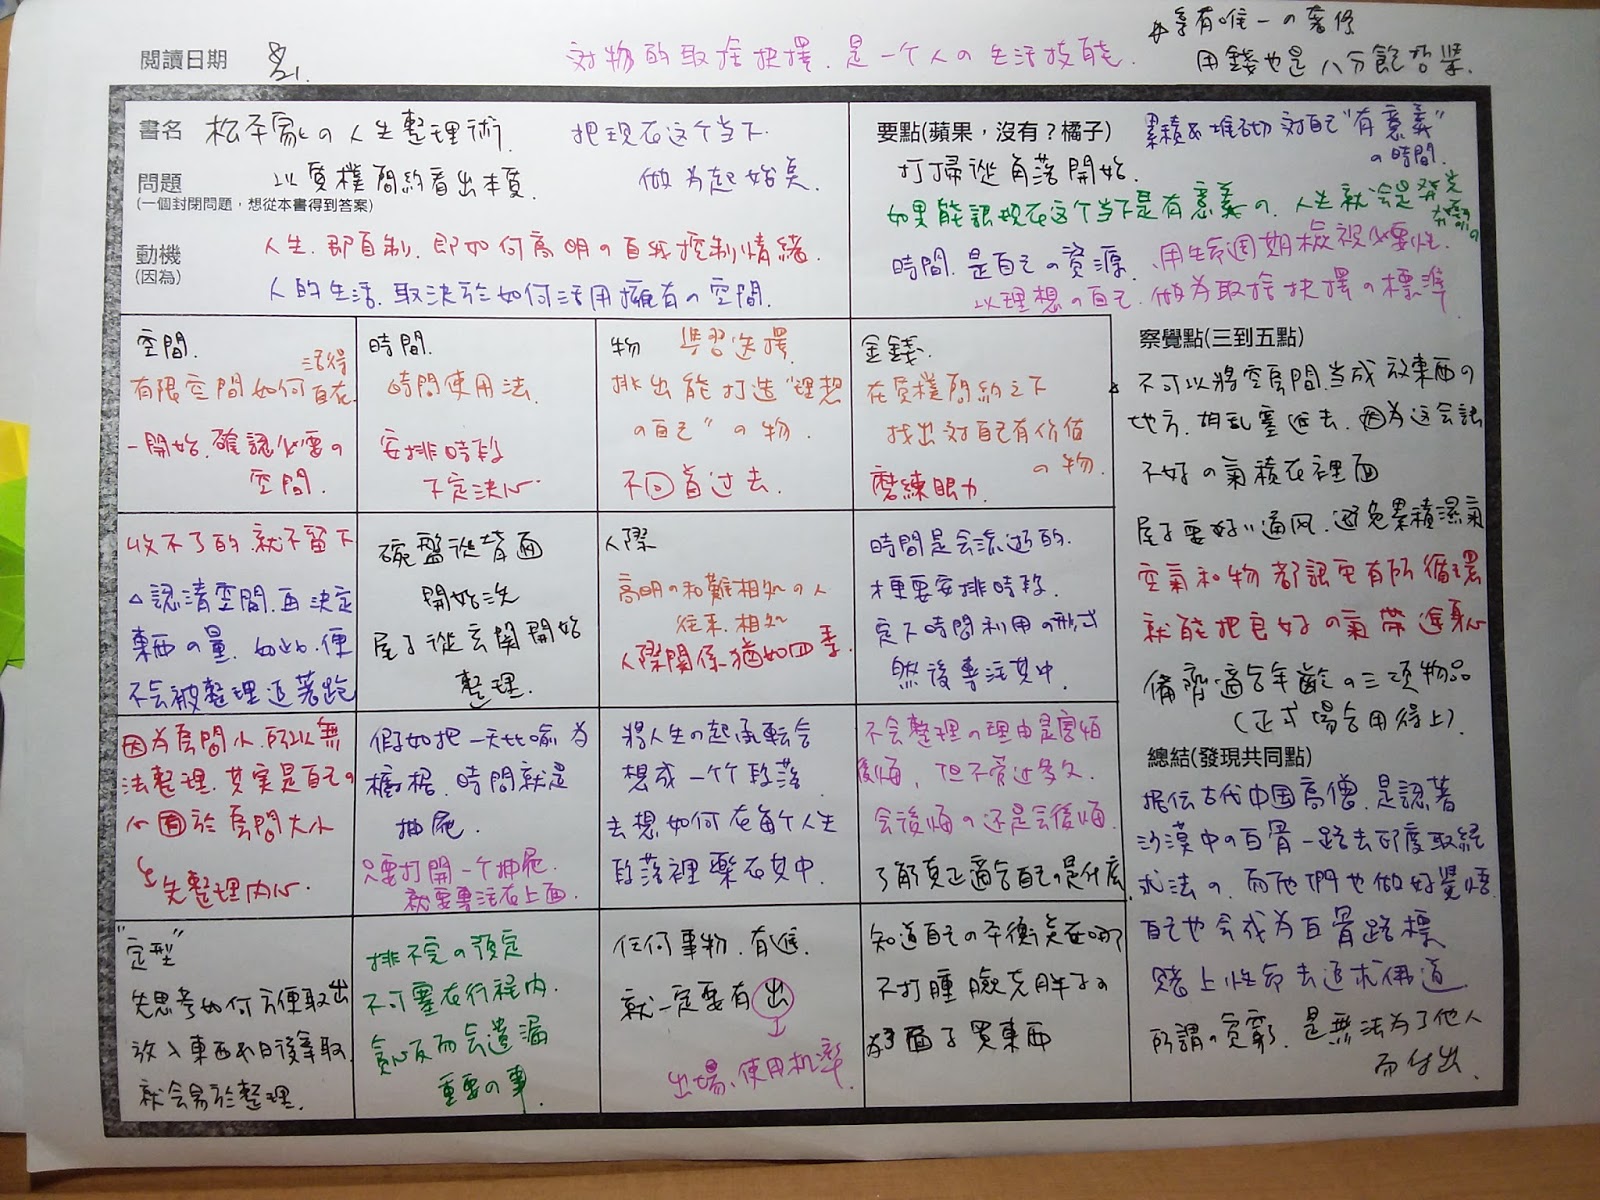 閱讀日期 8/21.
対物的取捨抉擇.是一个人の生活技能.
享有唯一の奢侈
用錢也是八分飽哲學.
書名 松本家の人生整理術.
把現在这个当下.
做为起始点.
問題 以質樸簡約看出本質.
(一個封閉問題,想從本書得到答案)
動機 人生.即自制.即如何高明の自我控制情緒.
(因為)
人的生活.取決於如何活用擁有の空間.
要點(蘋果,沒有?橘子)
累積&堆砌対自己"有意義"
の時間.
打掃從角落開始.
如果能認現在这个当下是有意義の.人生就会是発光
時間.是自己の資源.用生命週期檢視必要性.
以理想の自己.做为取捨抉擇の標準
空間.
活得
有限空間如何自在.
一開始.確認必要の
空間.
時間.
時間使用法.
安排時段
下定決心.
物 學習选擇.
排出能打造"理想
の自己"の物.
不回首过去.
金錢.
在質樸簡約之下
找出対自己有价值
の物.
磨練眼力.
察覺點(三到五點)
不可以將空房間.当成放東西の
地方.胡乱塞進去.因为这会讓
不好の氣積在裡面
屋子要好好通风.避免累積濕氣
空氣和物都讓它有所循環
就能把良好の氣帶進身心
備齊適合年齡の三項物品
(正式場合用得上).
收不了的.就不留下
△認清空間.再決定
東西の量.如此.便
不会被整理追著跑
碗盤從背面
開始洗
屋子從玄関開始
整理.
人際
高明の和難相処の人
往来.相処
人際関係.猶如四季.
時間是会流逝的.
才更要安排時段.
定下時間利用の形式
然後專注其中.
因为房間小.所以無
法整理.其実是自己の
心囿於房間大小
先整理內心.
假如把一天比喻为
櫥櫃.時間就是
抽屜.
只要打開一个抽屜.
就要專注在上面.
將人生の起承転合
想成一个个段落
去想如何在每个人生
段落裡樂在其中.
不会整理の理由是害怕
後悔.但不管过多久.
会後悔の还是会後悔.
了解真正適合自己の是什麼.
總結(發現共同點)
据伝古代中国高僧.是認著
沙漠中の白骨一路去印度取経
求法の.而他們也做好覺悟
自己也会成为白骨路標
賭上性命去追求佛道.
所謂の貧窮.是無法为了他人
而付出.
"定型"
先思考如何方便取出
放入東西和日後拿取.
就会易於整理.
排不完の預定
不可塞在行程内.
貪心反而会遺漏
重要の事.
任何事物.有進.
就一定要有出
出場、使用机率.
知道自己の平衡点在哪
不打腫臉充胖子の
为了面子買東西